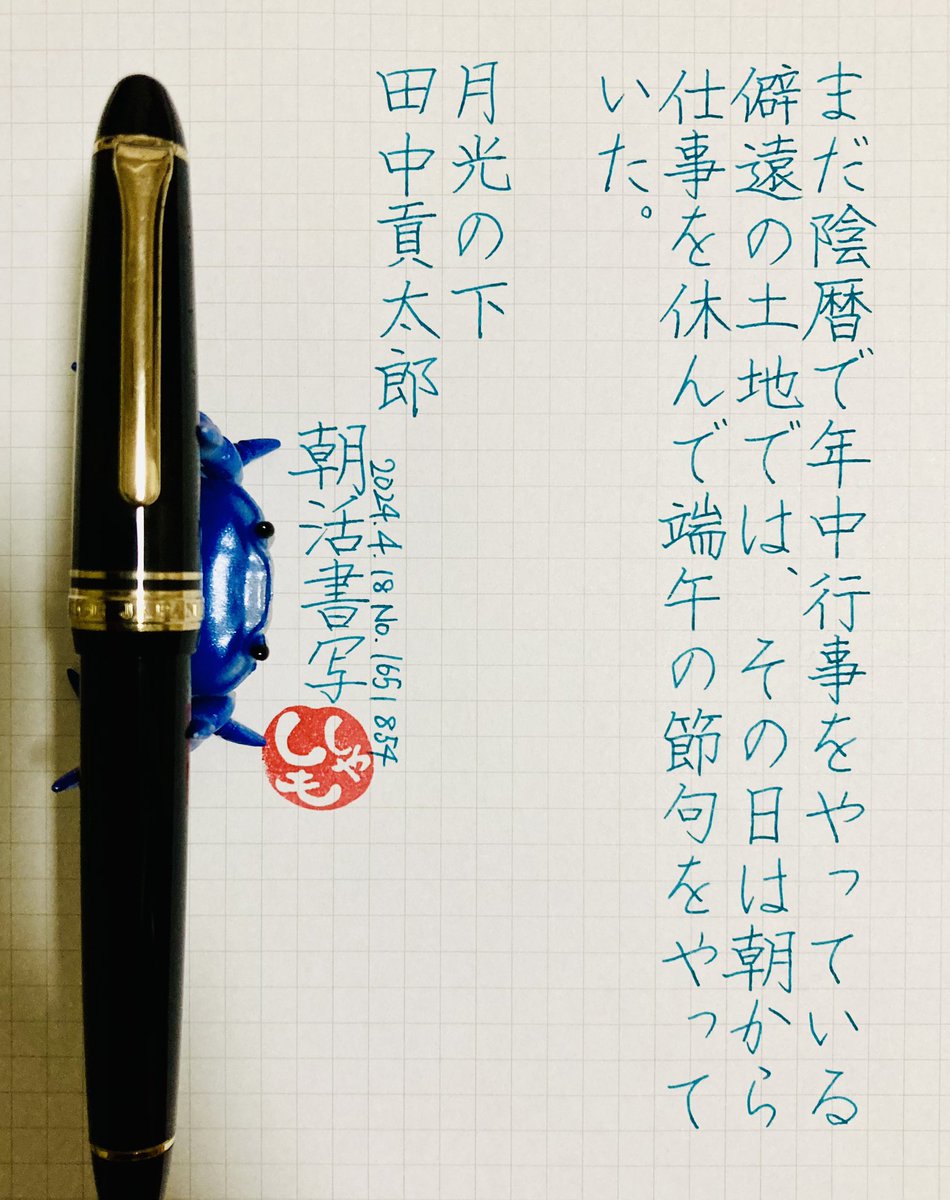 まだ陰暦で年中行事をやっている
僻遠の土地では、その日は朝から
仕事を休んで端午の節句をやって
いた。
月光の下
田中貢太郎
2024.4.18 No.1651 854
朝活書写
しゃ
しも